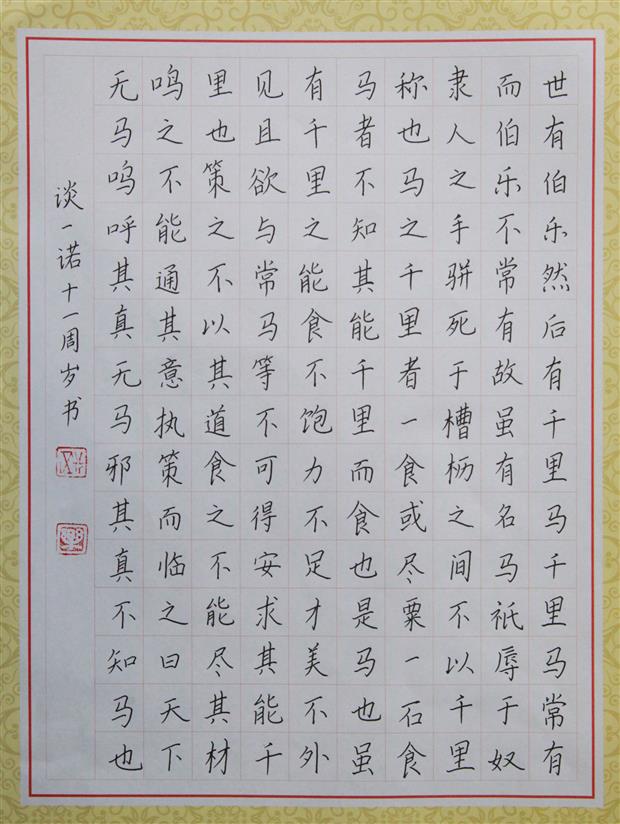 世有伯乐然后有千里马千里马常有
而伯乐不常有故虽有名马祇辱于奴
隶人之手骈死于槽枥之间不以千里
称也马之千里者一食或尽粟一石食
马者不知其能千里而食也是马也虽
有千里之能食不饱力不足才美不外
见且欲与常马等不可得安求其能千
里也策之不以其道食之不能尽其材
鸣之不能通其意执策而临之曰天下
无马呜呼其真无马邪其真不知马也
谈一诺十一周岁书